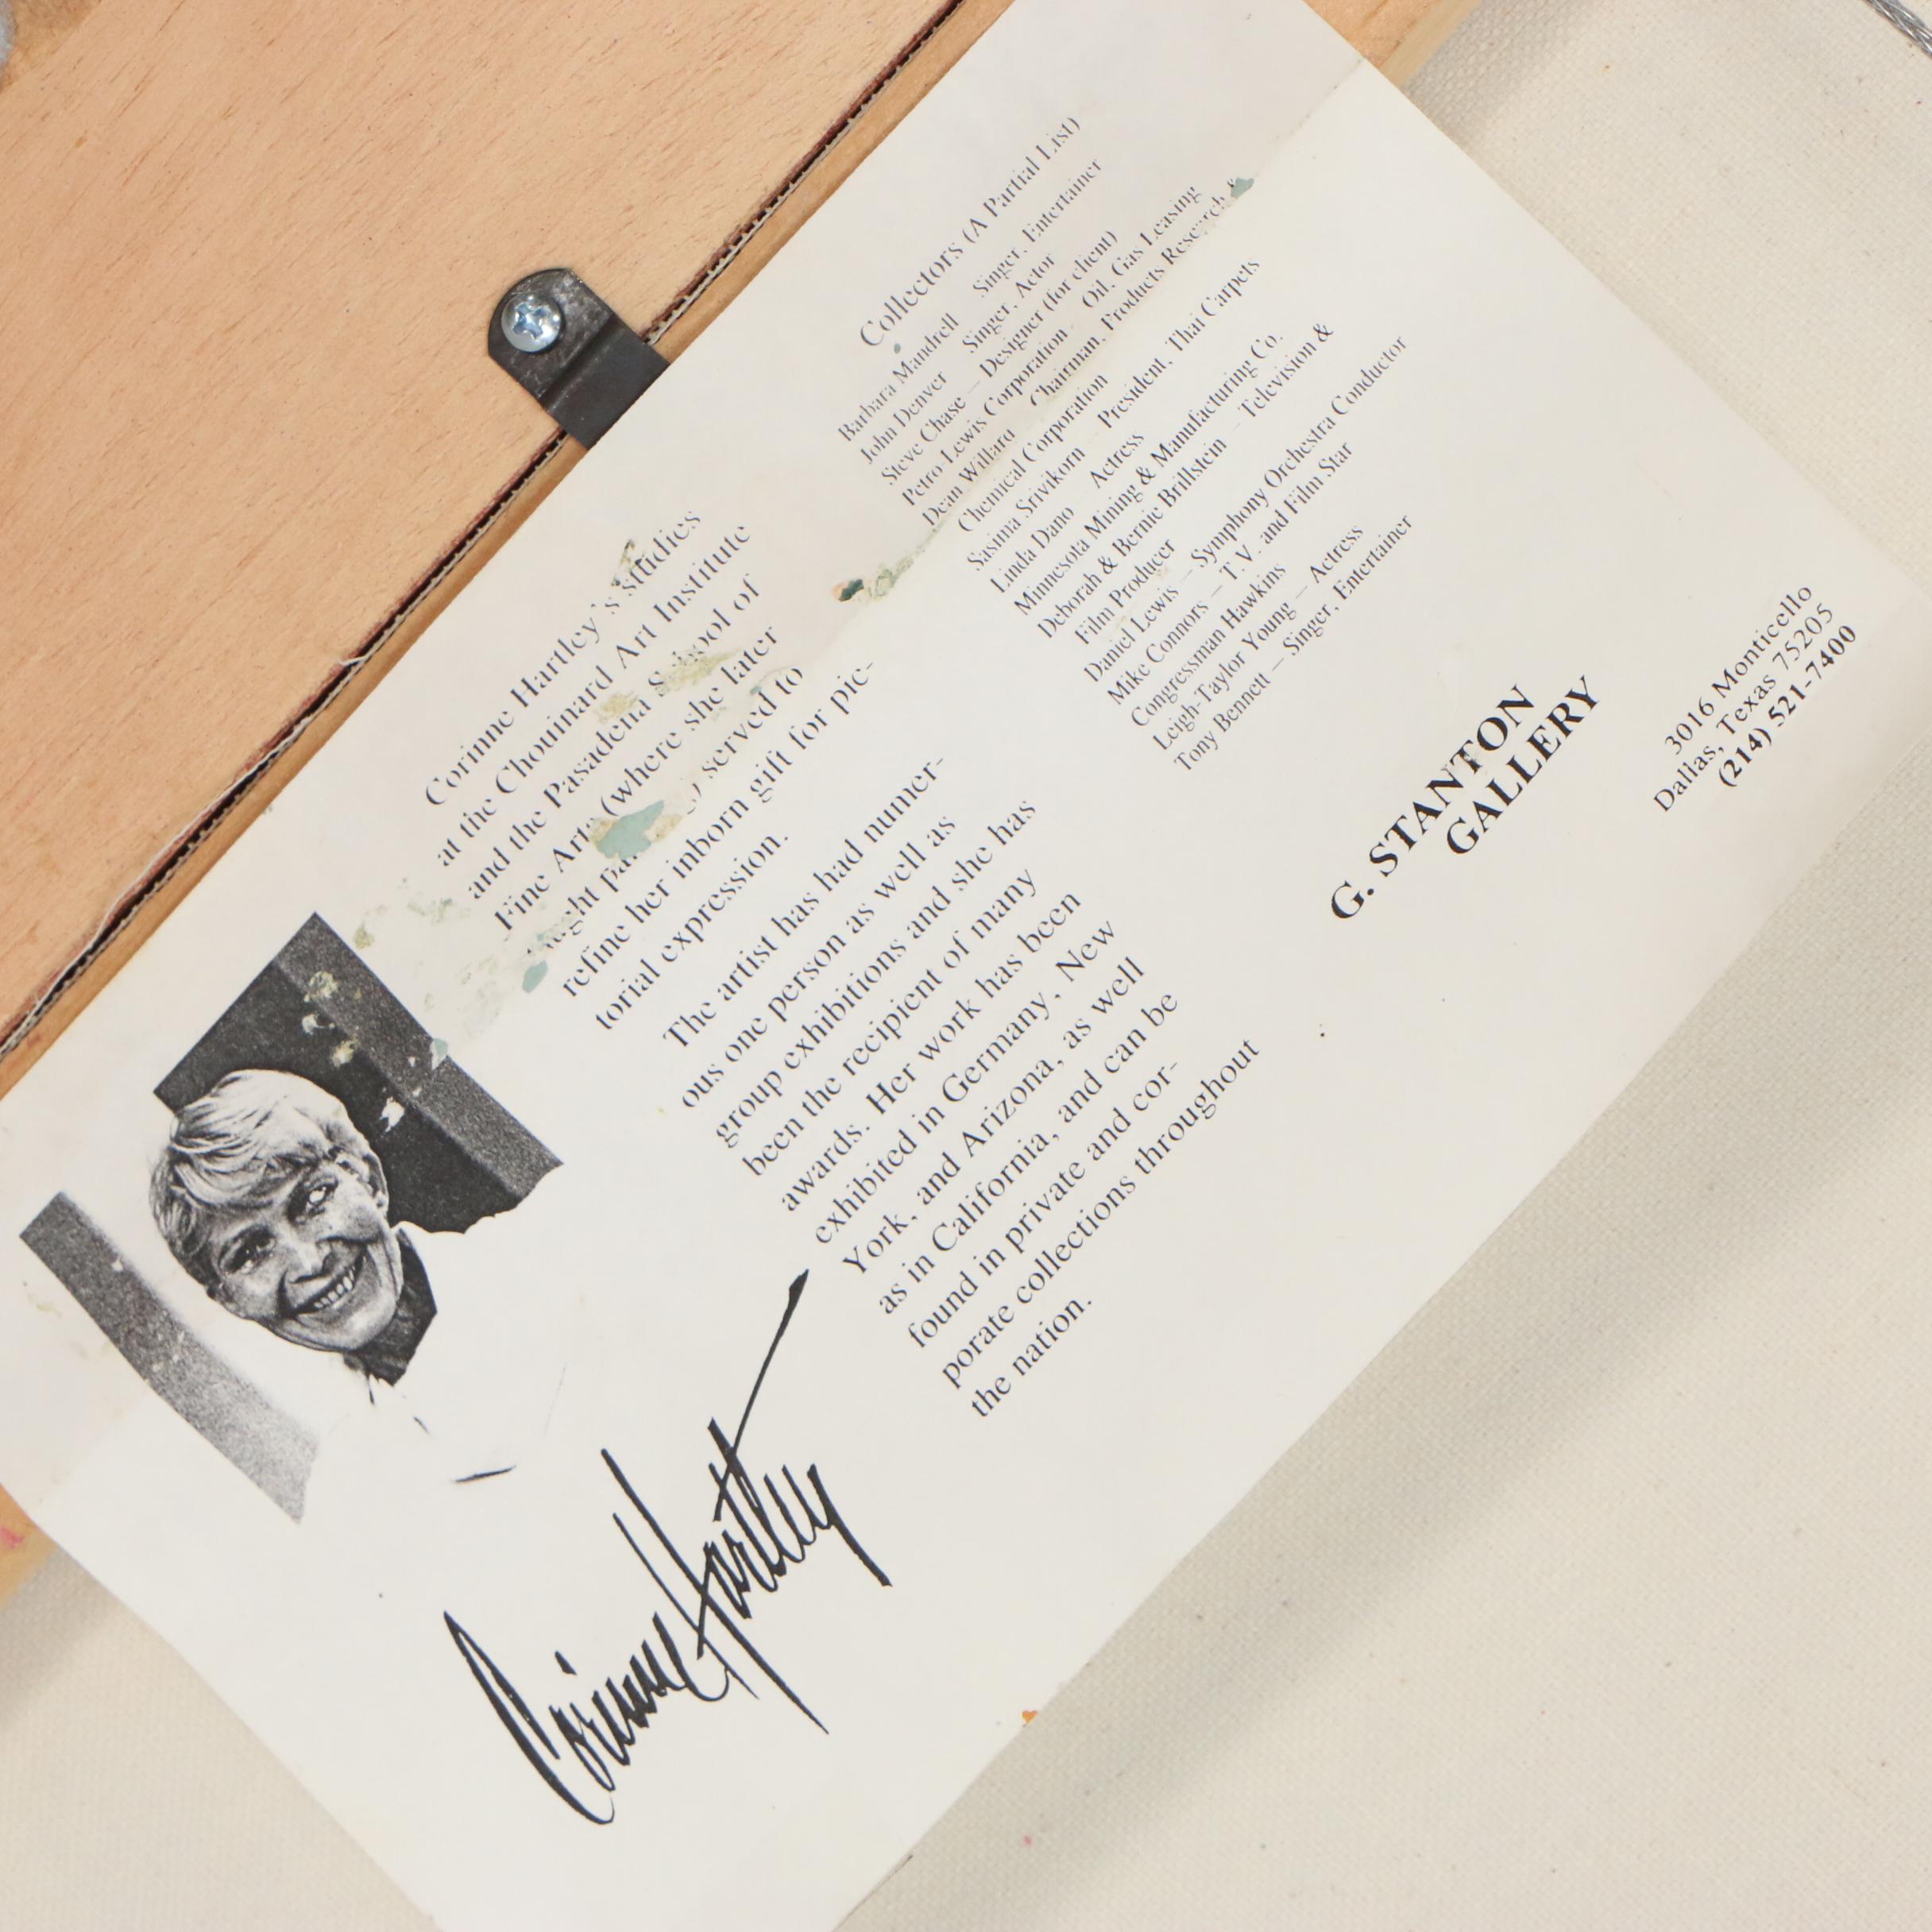 Corinne Hartley
Corinne Hartley's studies
at the Chouinard Art Institute
and the Pasadena School of
Fine Arts (where she later
served to
refine her inborn gift for pic-
torial expression.
The artist has had numer-
ous one person as well as
group exhibitions and she has
been the recipient of many
awards. Her work has been
exhibited in Germany, New
York, and Arizona, as well
as in California, and can be
found in private and cor-
porate collections throughout
the nation.
Collectors (A Partial List)
Barbara Mandrell Singer, Entertainer
John Denver Singer, Actor
Steve Chase — Designer (for client)
Petro Lewis Corporation - Oil, Gas Leasing
Dean Willard Chairman, Products Research &
Chemical Corporation
Sasima Srivikorn President, Thai Carpets
Linda Dano Actress
Minnesota Mining & Manufacturing Co.
Deborah & Bernie Brillstein — Television &
Film Producer
Daniel Lewis — Symphony Orchestra Conductor
Mike Connors — T.V. and Film Star
Congressman Hawkins
Leigh-Taylor Young — Actress
Tony Bennett — Singer, Entertainer
G. STANTON
GALLERY
3016 Monticello
Dallas, Texas 75205
(214) 521-7400